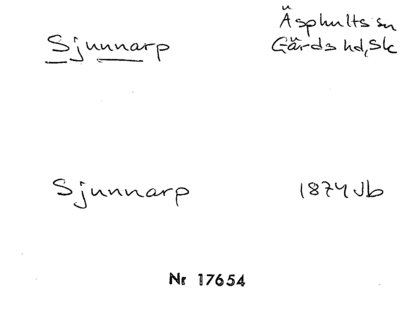 Sjunnarp
Äsphults sn
Gärds hd, Sk
Sjunnarp
1874 Jb
Nr 17654